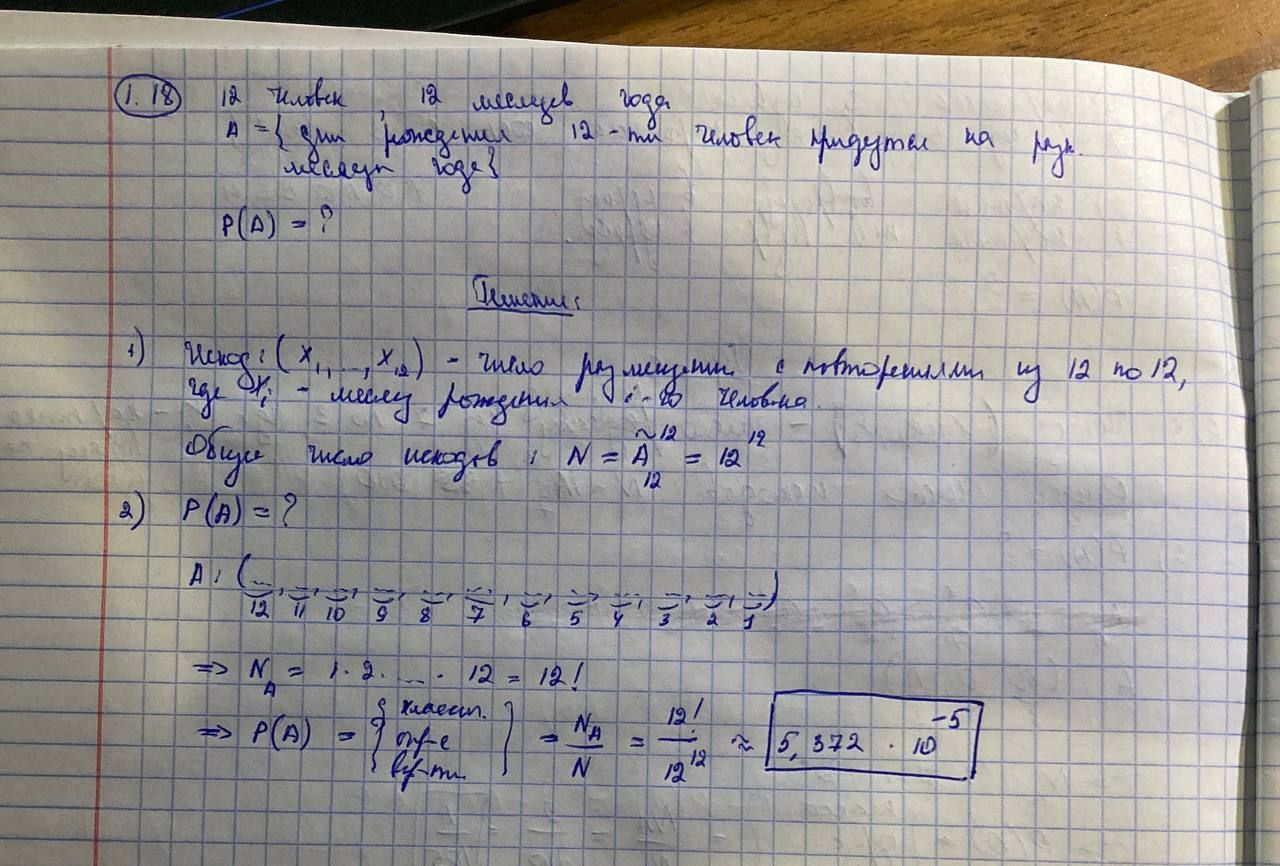 1.18 12 человек, 12 месяцев года
A = { дни рождения 12-ти человек придутся на разн.
месяцы года }
P(A) = ?
Решение:
1) Исход: (x₁, ..., x₁₂) - число размещений с повторениями из 12 по 12,
где xᵢ - месяц рождения i-го человека.
Общее число исходов: N = Ã₁₂¹² = 12¹²
2) P(A) = ?
A: (..., ..., ..., ..., ..., ..., ..., ..., ..., ..., ..., ...)
12 11 10 9 8 7 6 5 4 3 2 1
=> N_A = 1·2· ... · 12 = 12!
=> P(A) = { классич. опр-е вер-ти } = N_A/N = 12!/12¹² ≈ 5,372 · 10⁻⁵